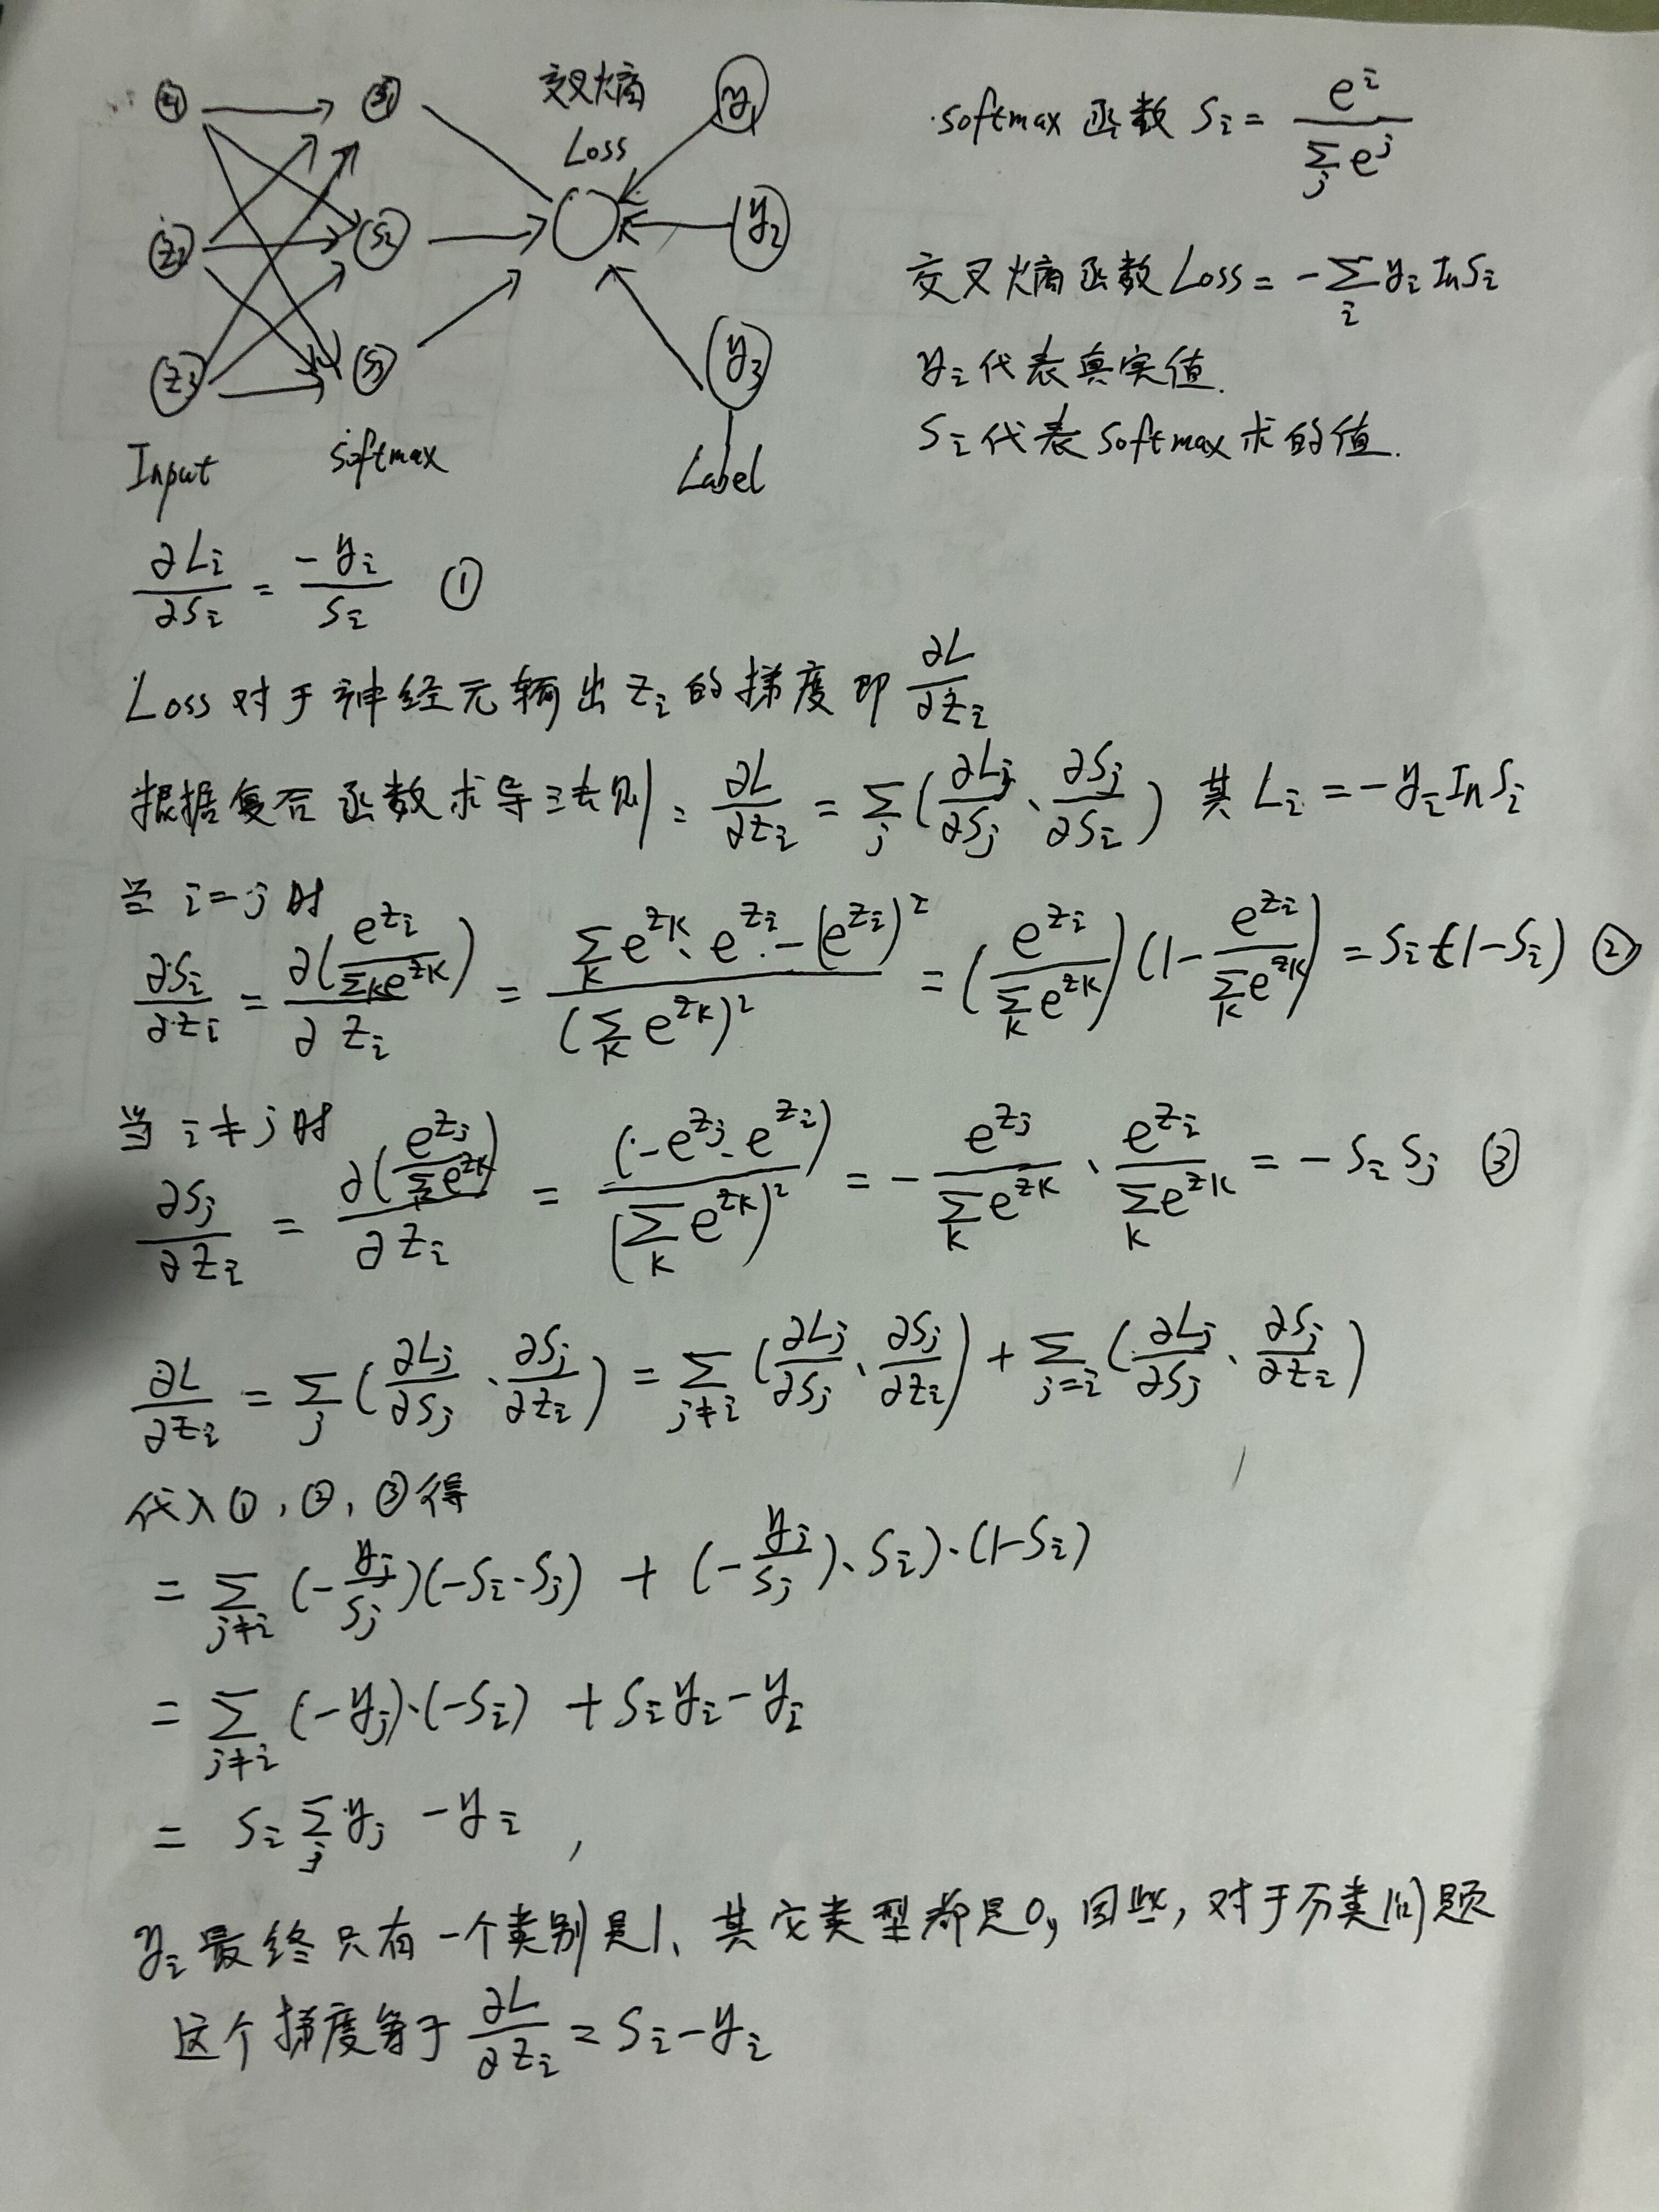 z₁ s₁ 交叉熵 y₁
Loss
z₂ s₂ y₂
z₃ s₃ y₃
Input softmax Label
softmax 函数 Sᵢ = eⁱ / Σⱼ eʲ
交叉熵函数 Loss = -Σᵢ yᵢ In Sᵢ
yᵢ 代表真实值.
Sᵢ 代表 softmax 求的值.
∂Lᵢ/∂Sᵢ = -yᵢ/Sᵢ ①
Loss 对于神经元输出 zᵢ 的梯度即 ∂L/∂zᵢ
根据复合函数求导法则: ∂L/∂zᵢ = Σⱼ (∂Lⱼ/∂Sⱼ · ∂Sⱼ/∂Sᵢ) 其 Lᵢ = -yᵢ In Sᵢ
当 i=j 时
∂Sᵢ/∂zᵢ = ∂(e^{zᵢ}/Σₖe^{zₖ})/∂zᵢ = (Σₖ e^{zₖ} · e^{zᵢ} - (e^{zᵢ})²)/(Σₖ e^{zₖ})² = (e^{zᵢ}/Σₖ e^{zₖ})(1 - e^{zᵢ}/Σₖ e^{zₖ}) = Sᵢ(1-Sᵢ) ②
当 i≠j 时
∂Sⱼ/∂zᵢ = ∂(e^{zⱼ}/Σₖ e^{zₖ})/∂zᵢ = (-e^{zⱼ} · e^{zᵢ})/(Σₖ e^{zₖ})² = - e^{zⱼ}/Σₖ e^{zₖ} · e^{zᵢ}/Σₖ e^{zₖ} = -Sᵢ Sⱼ ③
∂L/∂zᵢ = Σⱼ (∂Lⱼ/∂Sⱼ · ∂Sⱼ/∂zᵢ) = Σ_{j≠i} (∂Lⱼ/∂Sⱼ · ∂Sⱼ/∂zᵢ) + Σ_{j=i} (∂Lⱼ/∂Sⱼ · ∂Sⱼ/∂zᵢ)
代入①,②,③得
= Σ_{j≠i} (-yⱼ/Sⱼ)(-Sᵢ·Sⱼ) + (-yⱼ/Sⱼ)·Sᵢ)·(1-Sᵢ)
= Σ_{j≠i} (-yⱼ)·(-Sᵢ) + Sᵢyᵢ - yᵢ
= Sᵢ Σⱼ yⱼ - yᵢ ,
yᵢ 最终只有一个类别是1、其它类型都是0,因此,对于分类问题
这个梯度等于 ∂L/∂zᵢ = Sᵢ - yᵢ